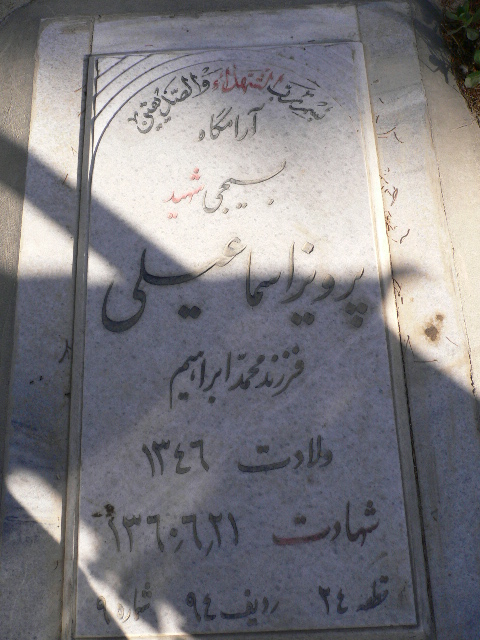 بسم رب الشهداء والصدیقین
آرامگاه
بسیجی شهید
پرویز اسماعیلی
فرزند محمد ابراهیم
ولادت ۱۳٤٦
شهادت ۱۳٦۰٫٦٫۲۱
قطعه ۲٤ ردیف ۹٤ شماره ۹